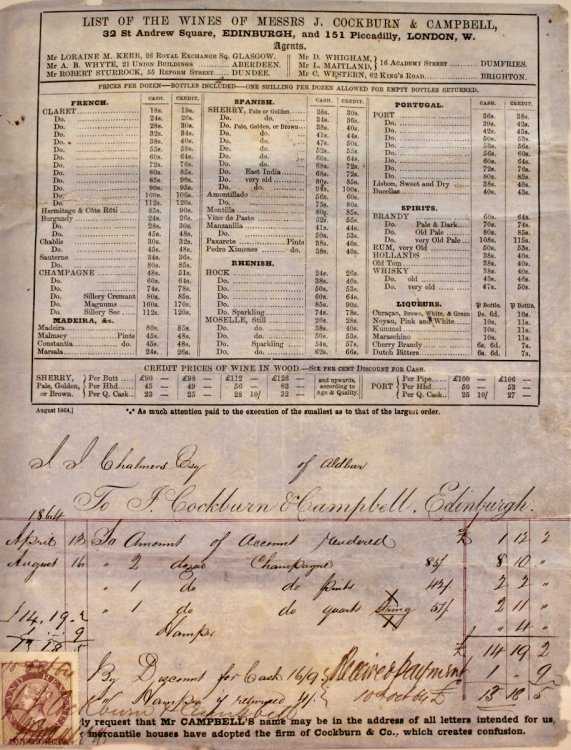 LIST OF THE WINES OF MESSRS J. COCKBURN & CAMPBELL,
32 ST ANDREW SQUARE, EDINBURGH, AND 151 PICCADILLY, LONDON, W.
Agents.
MR LORAINE M. KERR, 26 ROYAL EXCHANGE SQ. GLASGOW.
MR A. B. WHYTE, 21 UNION BUILDINGS ABERDEEN.
MR ROBERT STURROCK, 55 REFORM STREET DUNDEE.
MR D. WHIGHAM,
MR L. MAITLAND, 16 ACADEMY STREET DUMFRIES.
MR C. WESTERN, 62 KING'S ROAD BRIGHTON.
PRICES PER DOZEN—BOTTLES INCLUDED—ONE SHILLING PER DOZEN ALLOWED FOR EMPTY BOTTLES RETURNED.
FRENCH. CASH. CREDIT.
CLARET 18s. 19s.
Do. 24s.
Do. 28s. 30s.
Do. 32s. 34s.
Do. 38s. 40s.
Do. 55s. 58s.
Do. 60s. 64s.
Do. 72s. 76s.
Do. 80s. 85s.
Do. 85s. 90s.
Do. 90s. 95s.
Do. 100s. 106s.
Do. 112s. 120s.
Hermitage & Côte Rôti 85s. 90s.
Burgundy 24s. 26s.
Do. 28s. 30s.
Do. 45s. 48s.
Chablis 30s. 32s.
Do. 45s. 48s.
Sauterne 34s. 36s.
Do. 80s. 85s.
CHAMPAGNE 48s. 51s.
Do. 60s. 64s.
Do. 74s. 78s.
Do. Sillery Cremant 80s. 85s.
Do. Magnums 160s. 170s.
Do. Sillery Sec 112s. 120s.
MADEIRA, &c.
Madeira 80s. 85s.
Malmsey Pints 45s. 48s.
Constantia do. 45s. 48s.
Marsala 24s. 26s.
SPANISH. CASH. CREDIT.
SHERRY, Pale or Golden 28s. 30s.
Do. do. 34s. 36s.
Do. Pale, Golden, or Brown 38s. 40s.
Do. do. 41s. 44s.
Do. do. 47s. 50s.
Do. do. 52s. 55s.
Do. do. 60s. 64s.
Do. do. 68s. 72s.
Do. East India 68s. 72s.
Do. very old 80s. 85s.
Do. do. 94s. 100s.
Amontillado 50s.
Do. 75s. 80s.
Montilla 80s. 85s.
Vino de Pasto 52s. 55s.
Manzanilla 41s. 44s.
Do. 50s. 53s.
Paxarete Pints 38s. 40s.
Pedro Ximenes do. 38s. 40s.
RHENISH.
HOCK 24s. 26s.
Do. 38s. 40s.
Do. 50s. 53s.
Do. 60s. 64s.
Do. 85s. 90s.
Do. Sparkling 74s. 78s.
MOSELLE, Still 26s. 28s.
Do. do. 38s. 40s.
Do. do. 50s. 53s.
Do. Sparkling 54s. 57s.
Do. do. 62s. 66s.
PORTUGAL. CASH. CREDIT.
PORT 36s. 38s.
Do. 39s.
Do. 42s. 45s.
Do. 50s.
Do. 53s. 56s.
Do. 56s. 60s.
Do. 60s. 64s.
Do. 72s. 76s.
Do. 80s. 85s.
Lisbon, Sweet and Dry 38s. 40s.
Bucellas 40s. 43s.
SPIRITS.
BRANDY 60s. 64s.
Do. Pale & Dark 70s. 74s.
Do. Old Pale 80s. 85s.
Do. very Old Pale 108s. 115s.
RUM, very Old 50s. 53s.
HOLLANDS 38s. 40s.
Old Tom 38s. 40s.
WHISKY 38s. 40s.
Do. old 43s. 46s.
Do. very old 47s. 50s.
LIQUEURS. ℔ Bottle. ℔ Bottle.
Curaçao, Brown, White, & Green 9s. 6d. 10s.
Noyau, Pink and White 10s. 11s.
Kummel 10s. 11s.
Maraschino 10s. 11s.
Cherry Brandy 6s. 6d. 7s.
Dutch Bitters 6s. 7s.
CREDIT PRICES OF WINE IN WOOD.—SIX PER CENT DISCOUNT FOR CASH.
SHERRY, Per Butt £90 — £98 — £112 — £126 — and upwards, PORT Per Pipe £100 — £106
Pale, Golden, Per Hhd. 45 — 49 — 56 — 63 — according to Per Hhd. 50 — 53
or Brown. Per Q. Cask 23 — 25 — 28 10/ — 32 — Age & Quality. Per Q. Cask 25 10/ — 27
August 1864.] *** As much attention paid to the execution of the smallest as to that of the largest order.
J. I. Chalmers Esq of Aldbar
To J. Cockburn & Campbell, Edinburgh.
1864
April 13 To Amount of Account rendered £ 1 12 2
August 16 " 2 dozen Champagne 85/ 8 10 "
" 1 do do pints 42/ 2 2 "
" 1 do do quarts 51/ 2 11 "
Hamper " 4 "
£14.19.2 £ 14 19 2
By Discount for Cash 16/9 Received payment 1 " 9
" Hamper if returned 4/ 10 Oct 64 £ 13 18 5
ly request that MR CAMPBELL'S name may be in the address of all letters intended for us,
mercantile houses have adopted the firm of Cockburn & Co., which creates confusion.